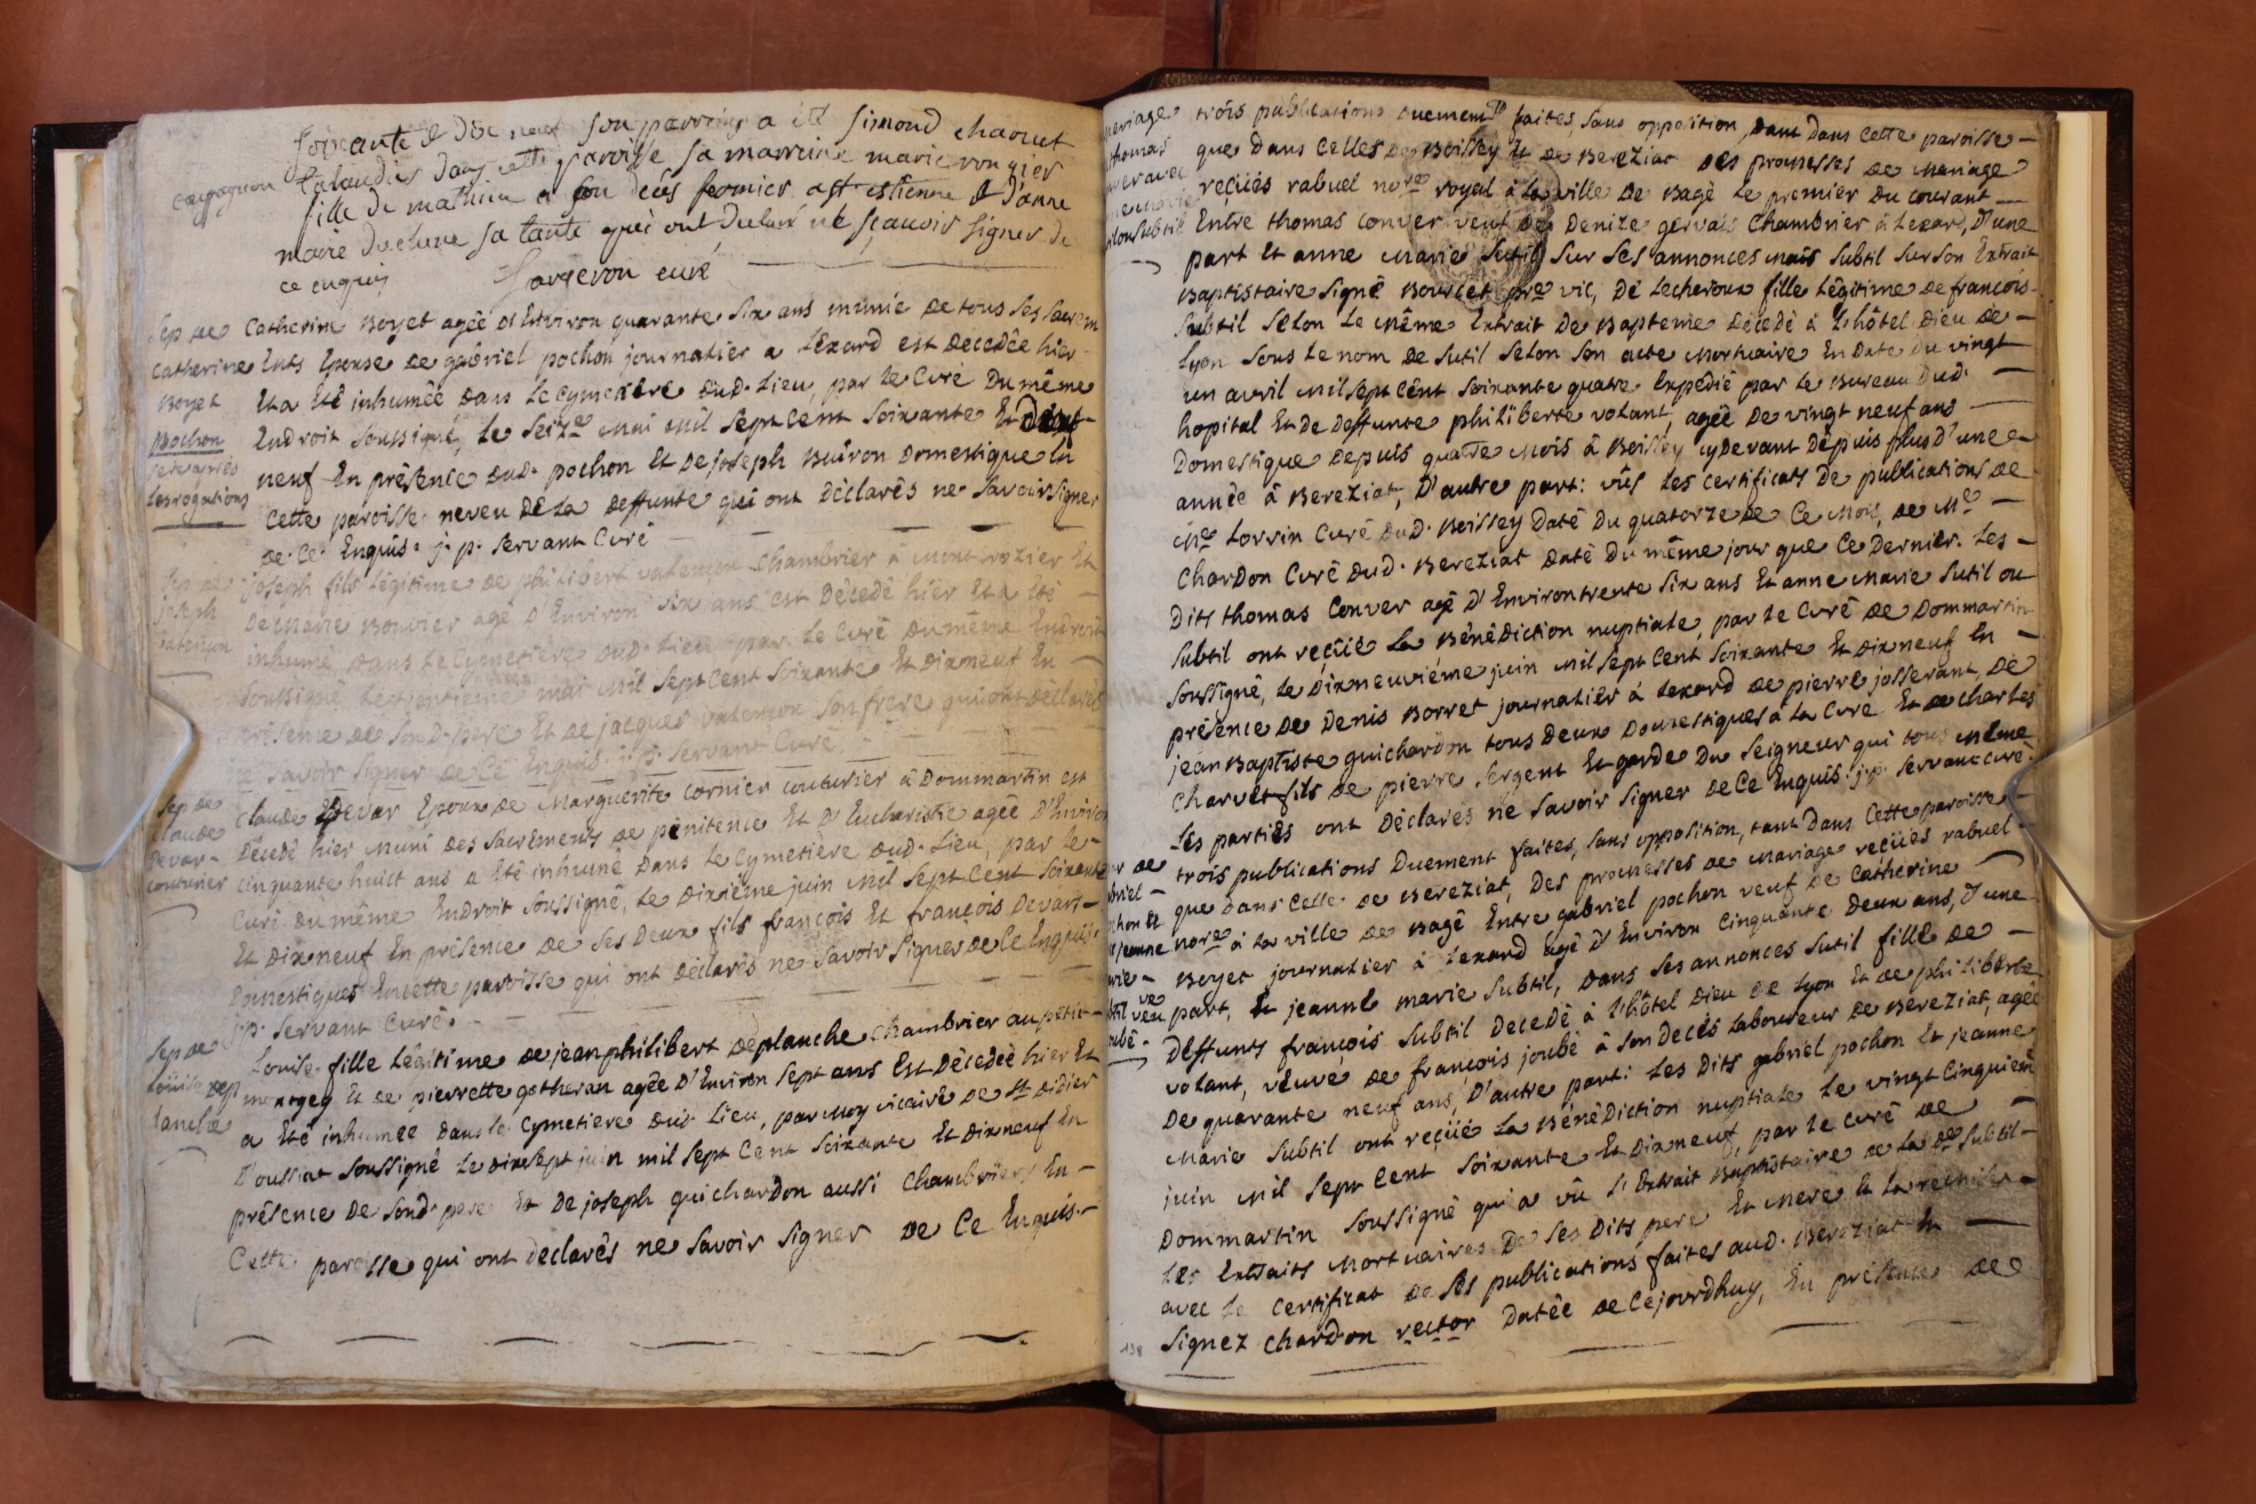 soixante & dix neuf son parrain a été simond chaouet
calaudier dans cette paroisse sa marraine marie rongier
fille de mathieu a son deces fermier a st estienne & d'anne
marie duclune sa tante qui ont declaré ne sçauoir signer de
ce enquis fargeron curé
Sep de
catherine
Boyet
pochon
jeudy après
les rogations
Catherine Boyet agée D'Environ quarante six ans munie de tous ses sacrem
Ents Epouse de gabriel pochon journalier a Lexard est Decedée hier
Et a Eté inhumée dans Le Cymetiere dud. Lieu, par le Curé Du même
Endroit soussigné, le seize mai mil sept cent soixante Et dix
neuf En présence dud. pochon Et de joseph Buiron Domestique En
Cette paroisse neveu De La Deffunte qui ont Déclarés ne savoir signer
De Ce Enquis. j. p. servant Curé
Sep de
joseph
Valençon
joseph fils légitime de philibert valençon Chambrier à Montrozier Et
De Marie Bouvier agé D'Environ six ans est Décedé hier Et a Eté
inhumé, dans Le Cymetière dud. Lieu par Le Curé du même Endroit
soussigné, mai mil sept cent soixante Et dix neuf En
présence de son d. pere Et de jacques valençon son frere qui ont déclarés
ne savoir signer de Ce Enquis. j. p. servant Curé
Sep de
claude
Devar
couturier
claude Devar Epoux de Marguerite cornier couturier à Dommartin est
Décedé hier Muni des sacrements de pénitence Et D'Eucharistie agée D'Environ
cinquante huict ans a Eté inhumé Dans Le Cymetière dud. Lieu, par Le
Curé du même Endroit soussigné, Le Dixième juin Mil sept Cent soixante
Et Dixneuf En présence de ses Deux fils françois Et françois Devars
Domestiques En cette paroisse qui ont Déclarés ne savoir signer de Ce Enquis.
j. p. servant Curé.
Sep de
Loüise dep
lanche
Louise fille Légitime de jean philibert deplanche Chambrier au petit
montgey Et de pierrette gotheran agée D'Environ sept ans Est Décedée hier Et
a Eté inhumée Dans le Cymetiere dud. Lieu, par Moy vicaire de st Didier
D'oussiat soussigné Le dixsept juin mil sept Cent soixante Et dixneuf En
présence De son d. pere Et De joseph guichardon aussi Chambriers En
Cette paroisse qui ont declarés ne savoir signer De Ce Enquis.
mariage
thomas
Subtil
trois publications duement faites, sans opposition, tant dans Cette paroisse
que dans Celles de Boissey Et de Bereziat Des promesses de Mariage
reçüés rabuel nore royal à La ville De Bagé Le premier Du courant
Entre thomas conver veuf de Denize gervais Chambrier à Lexard, D'une
part Et anne Marie Sutil sur ses annonces mais Subtil sur son Extrait
Baptistaire signé Bourcet pre vic, De Lescheroux fille Légitime de françois
Subtil selon Le Même Extrait De Bapteme Décedé à L'hôtel Dieu de
Lyon sous Le nom de Sutil selon son acte Mortuaire En Date du vingt
un avril mil sept Cent soixante quatre Expédié par Le Bureau Dud.
hopital Et de Deffunte philiberte volant, agée De vingt neuf ans
Domestique depuis quatre Mois à Boissey cy devant Depuis plus D'une
année à Bereziat, D'autre part: vûs Les certificats De publications de
Me Lorrin Curé Dud. Boissey Daté Du quatorze de Ce Mois, de Me
Chardon Curé Dud. Bereziat Daté Du même jour que Ce Dernier. Les
Dits thomas Conver agé D'Environ trente six ans Et anne Marie Sutil ou
Subtil ont reçüe La Bénédiction nuptiale, par Le Curé De Dommartin
soussigné, Le Dixneuvième juin mil sept Cent soixante Et dixneuf En
présence De Denis Borret journalier à Lexard de pierre josserant, De
jean Baptiste guichardon tous Deux Domestiques à La Cure Et de Charles
Charvet fils De pierre sergent Et garde Du Seigneur qui tous même
Les parties ont Déclarés ne savoir signer De Ce Enquis j. p. servant curé.
trois publications Duement faites, sans opposition, tant Dans Cette paroisse
que dans Celle de Bereziat, Des promesses de Mariage reçües rabuel
nore à La ville de Bagé Entre gabriel pochon veuf de Catherine
Boyet journalier à Lexard agé D'Environ Cinquante Deux ans, D'une
part, Et jeanne marie Subtil, dans ses annonces Sutil fille De
Deffunts françois Subtil Decedé à L'hôtel Dieu de Lyon Et de philiberte
volant, veuve de françois joubé à son Decés Laboureur de Bereziat, agée
De quarante neuf ans, D'autre part: Les Dits gabriel pochon Et jeanne
Marie Subtil ont reçüe La Bénédiction nuptiale Le vingt Cinquiem
juin mil sept Cent soixante Et Dixneuf, par Le Curé De
Dommartin soussigné qui a vû L'Extrait Baptistaire de La de Subtil
Les Extraits Mortuaires De ses Dits pere Et Mere Et La remise
avec Le Certificat de ses publications faites aud. Bereziat En
signez Chardon rector Datée de Cejourdhuy, En présence de
138